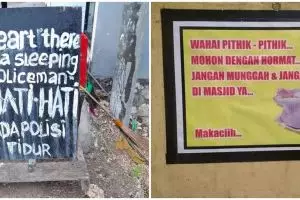 eart there
a sleeping
oliceman
ATI-HATI
DA POLISI
TIDUR
WAHAI PITHIK - PITHIK...
MOHON DENGAN HORMAT...
JANGAN MUNGGAH & JANG
DI MASJID YA...
Makaciih...